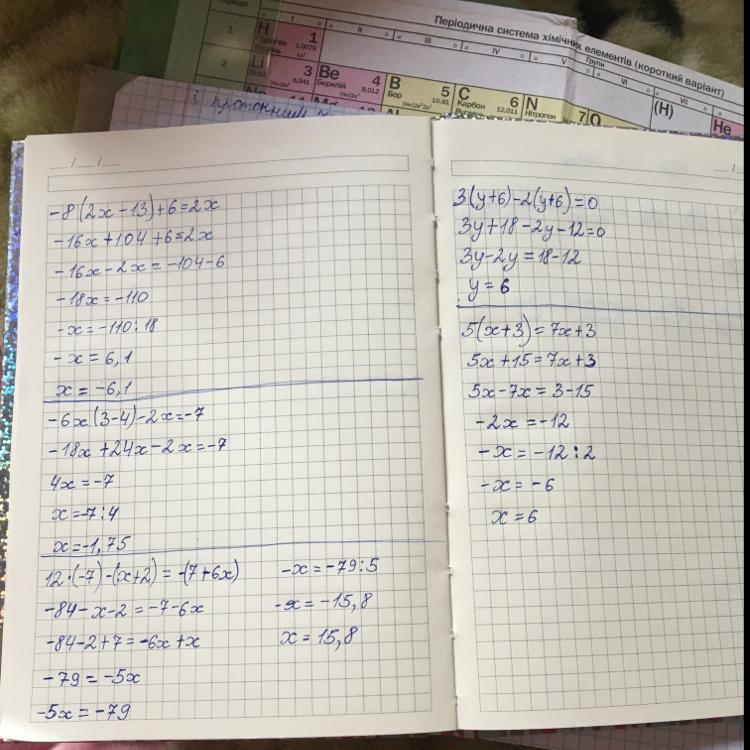 Періодична система хімічних елементів (короткий варіант)
Групи
a I b a II b a III b a IV b a V b a VI b a VII b
1 H 1 1.0079 (H) He
2 Li 3 6,941 Be 4 Берилій 9,012 B 5 Бор 10,81 C 6 Карбон 12,011 N 7 Нітроген O
і протонний
-8(2x-13)+6=2x
-16x+104+6=2x
-16x-2x=-104-6
-18x=-110
-x=-110:18
-x=6,1
x=-6,1
-6x(3-4)-2x=-7
-18x+24x-2x=-7
4x=-7
x=-7:4
x=-1,75
12·(-7)-(x+2)=-(7+6x)
-84-x-2=-7-6x
-84-2+7=-6x+x
-79=-5x
-5x=-79
-x=-79:5
-x=-15,8
x=15,8
3(y+6)-2(y+6)=0
3y+18-2y-12=0
3y-2y=18-12
y=6
5(x+3)=7x+3
5x+15=7x+3
5x-7x=3-15
-2x=-12
-x=-12:2
-x=-6
x=6